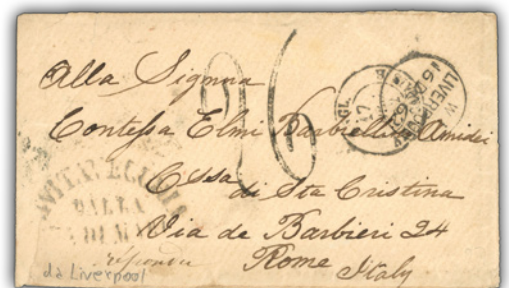 Alla Signora
Contessa Elmi Barbiellini Amidei
Cssa di Sta Cristina
Via de Barbieri 24
Rome Italy
da Liverpool
26
LIVERPOOL
DALLA